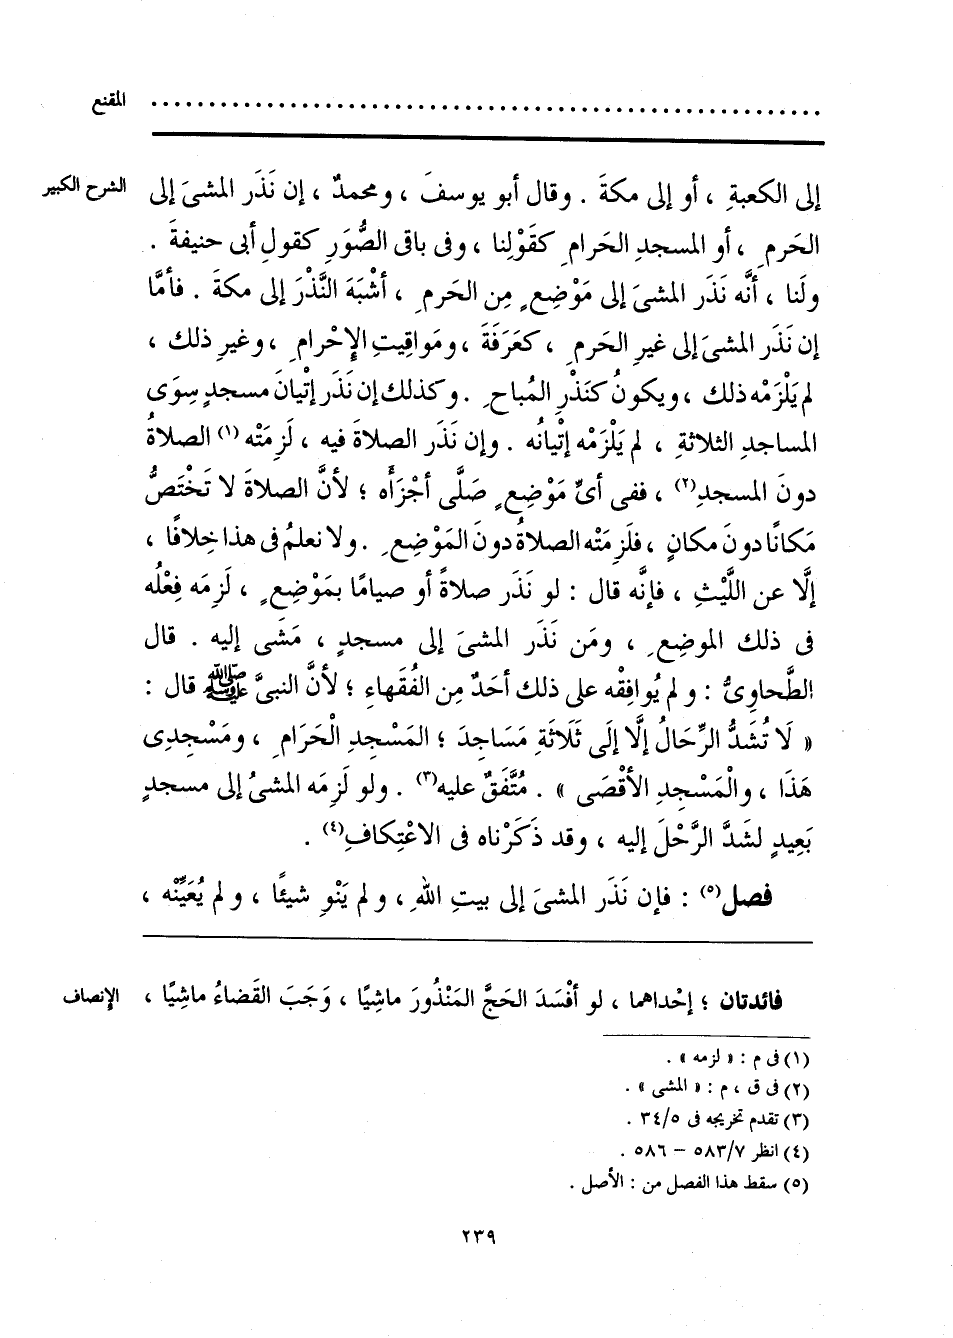 المقنع ........................................................
الشرح الكبير
إلى الكعبةِ ، أو إلى مكةَ . وقال أبو يوسفَ ، ومحمدٌ ، إن نَذَر المشىَ إلى
الحَرمِ ، أو المسجدِ الحَرامِ كقَوْلِنا ، وفى باقى الصُّوَرِ كقولِ أبى حنيفةَ .
ولَنا ، أنَّه نَذَر المشىَ إلى مَوْضِعٍ مِن الحَرمِ ، أشْبَهَ النَّذْرَ إلى مكةَ . فأمَّا
إن نَذَر المشىَ إلى غيرِ الحَرمِ ، كعَرَفَةَ ، ومَواقِيتِ الإِحْرامِ ، وغيرِ ذلك ،
لم يَلْزَمْه ذلك ، ويكونُ كنَذْرِ المُباحِ . وكذلك إن نَذَر إتْيانَ مسجدٍ سِوَى
المساجدِ الثلاثةِ ، لم يَلْزَمْه إتْيانُه . وإن نَذَر الصلاةَ فيه ، لَزِمَتْه(١) الصلاةُ
دونَ المسجدِ(٢) ، ففى أىِّ مَوْضِعٍ صَلَّى أجْزَأَه ؛ لأنَّ الصلاةَ لا تَخْتَصُّ
مَكانًا دونَ مكانٍ ، فلَزِمَتْه الصلاةُ دونَ المَوْضِعِ . ولا نعلمُ فى هذا خِلافًا ،
إلَّا عن اللَّيْثِ ، فإنَّه قال : لو نَذَر صلاةً أو صيامًا بمَوْضِعٍ ، لَزِمَه فِعْلُه
فى ذلك الموضِعِ ، ومَن نَذَر المشىَ إلى مسجدٍ ، مَشَى إليه . قال
الطَّحاوِىُّ : ولم يُوافِقْه على ذلك أحَدٌ مِن الفُقَهاءِ ؛ لأنَّ النبىَّ ﷺ قال :
« لَا تُشَدُّ الرِّحَالُ إلَّا إلَى ثَلَاثَةِ مَسَاجِدَ ؛ المَسْجِدِ الْحَرَامِ ، ومَسْجِدِى
هَذَا ، والْمَسْجِدِ الأقْصَى » . مُتَّفَقٌ عليه(٣) . ولو لَزِمَه المشىُ إلى مسجدٍ
بَعِيدٍ لشَدَّ الرَّحْلَ إليه ، وقد ذَكَرْناه فى الاعْتِكافِ(٤) .
فصل(٥) : فإن نَذَر المشىَ إلى بيتِ اللهِ ، ولم يَنْوِ شيئًا ، ولم يُعَيِّنْه ،
الإنصاف
فائدتان ؛ إحْداهما ، لو أفْسَدَ الحَجَّ المَنْذُورَ ماشِيًا ، وَجَبَ القَضاءُ ماشِيًا ،
(١) فى م : « لزمه » .
(٢) فى ق ، م : « المشى » .
(٣) تقدم تخريجه فى ٣٤/٥ .
(٤) انظر ٥٨٣/٧ – ٥٨٦ .
(٥) سقط هذا الفصل من : الأصل .
٢٣٩